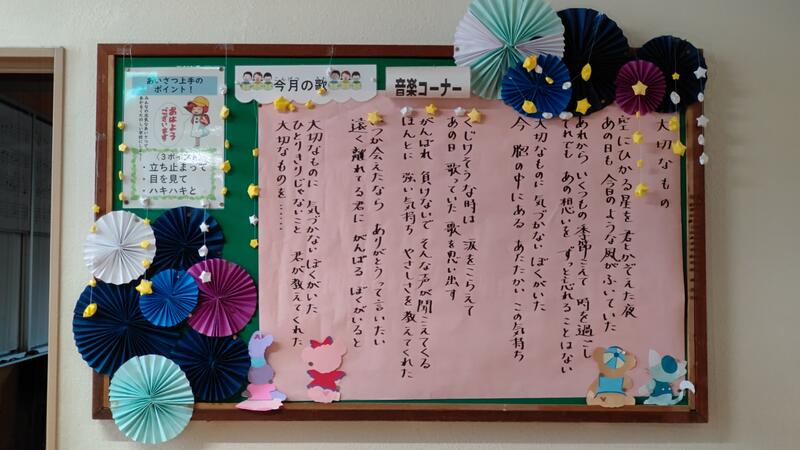 あいさつ上手の
ポイント!
おはよう
ございます
〈3ポイント〉
・立ち止まって
・目を見て
・ハキハキと
今月の歌
音楽コーナー
大切なもの
空にひかる星を 君とかぞえた夜
あの日も 今日のような風がふいていた
あれから いくつもの季節こえて 時を過ごし
それでも あの想いを ずっと忘れることはない
大切なものに 気づかないぼくがいた
今 胸の中にある あたたかい この気持ち
くじけそうな時は 涙をこらえて
あの日 歌っていた 歌を思い出す
がんばれ 負けないで そんな声が聞こえてくる
ほんとに 強い気持ち やさしさを教えてくれた
いつか会えたなら ありがとうって言いたい
遠く離れてる君に がんばる ぼくがいると
大切なものに 気づかないぼくがいた
ひとりきりじゃないこと 君が教えてくれた
大切なものを……